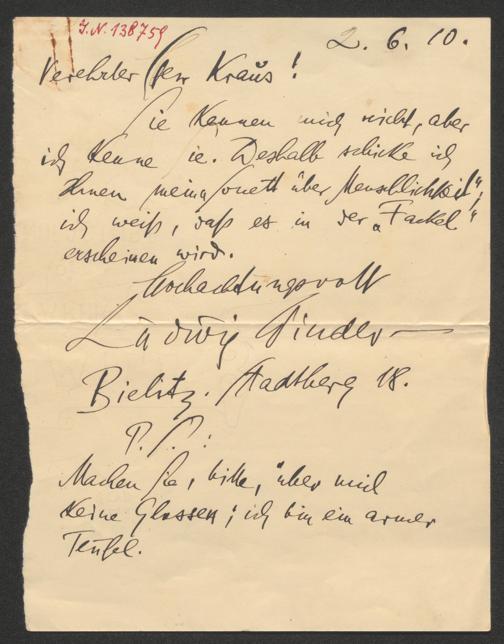 J.N. 138759
2. 6. 10.
Verehrter Herr Kraus!
Sie kennen mich nicht, aber
ich kenne Sie. Deshalb schicke ich
Ihnen mein Sonett über „Menschlichkeit“;
ich weiß, daß es in der „Fackel“
erscheinen wird.
Hochachtungsvoll
Ludwig
Bielitz. Stadtberg 18.
P. S.:
Machen Sie, bitte, über mich
keine Glossen; ich bin ein armer
Teufel.